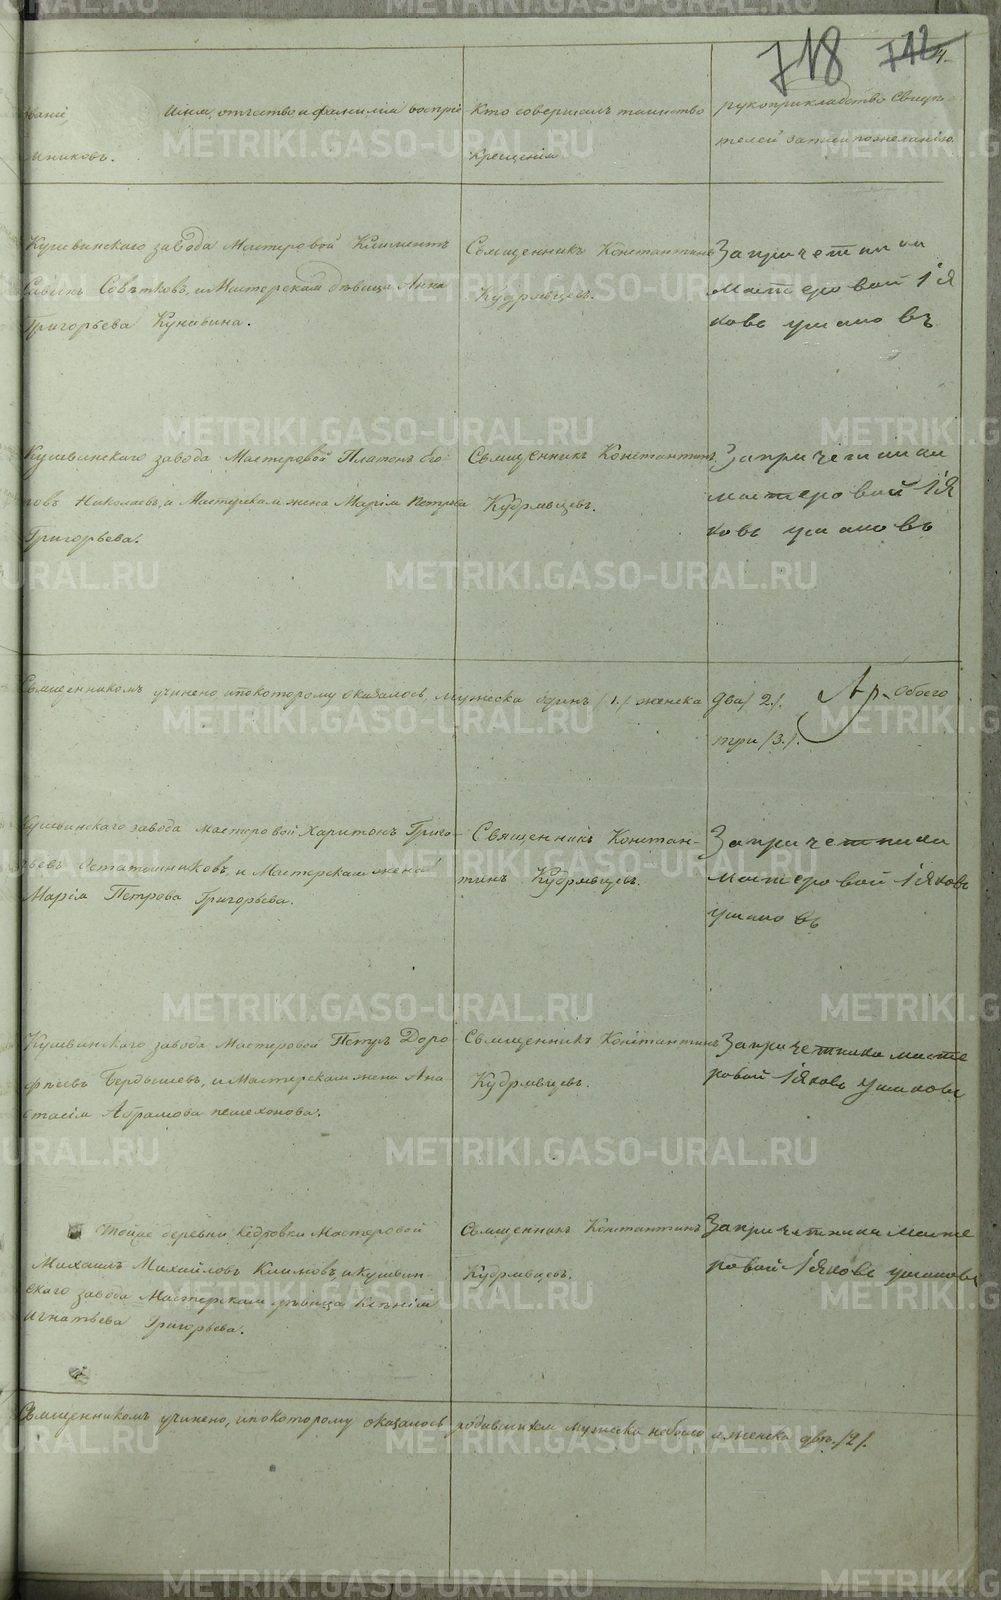 718 712
Званіе, Имя, отчество и фамилія воспріе
мниковъ.
Кто совершалъ таинство
крещенія
рукоприкладство Свидѣ-
телей записи по желанію.
Кушвинскаго завода Мастеровой Климентъ
Савинъ Совѣтковъ, и Мастерская дѣвица Анна
Григорьева Кунавина.
Священникъ Константинъ
Кудрявцевъ.
За
мастеровой Iя
ковъ ушаковъ
Кушвинскаго завода Мастеровой Платонъ Его
ровъ Николаевъ, и Мастерская жена Марія Петрова
Григорьева.
Священникъ Константинъ
Кудрявцевъ.
За
мастеровой Iя
ковъ ушаковъ
Священникомъ учинено, и по которому оказалось, мужеска одинъ /1./ женска два/ 2./. Обоего
три /3./.
Кушвинскаго завода мастеровой Харитонъ Григо-
рьевъ Осташниковъ, и Мастерская жена
Марія Петрова Григорьева.
Священникъ Констан-
тинъ Кудрявцевъ.
За
мастеровой Iяковъ
ушаковъ
Кушвинскаго завода Мастеровой Петръ Доро
фѣевъ Бердышевъ, и Мастерская жена Ана
стасія Абрамова пешехонова.
Священникъ Константинъ
Кудрявцевъ.
За причетника масте
ровой Iяковъ Ушаковъ
Тойже деревни Кедровки Мастеровой
Михаилъ Михайловъ Климовъ, и Кушвин-
скаго завода Мастерская дѣвица Ксенія
Игнатьева Григорьева.
Священникъ Константинъ
Кудрявцевъ.
За причетника масте
ровой Iяковъ ушаковъ
Священникомъ учинено, и по которому оказалось родившихся мужеска небыло а женска двѣ /2/.
METRIKI.GASO-URAL.RU